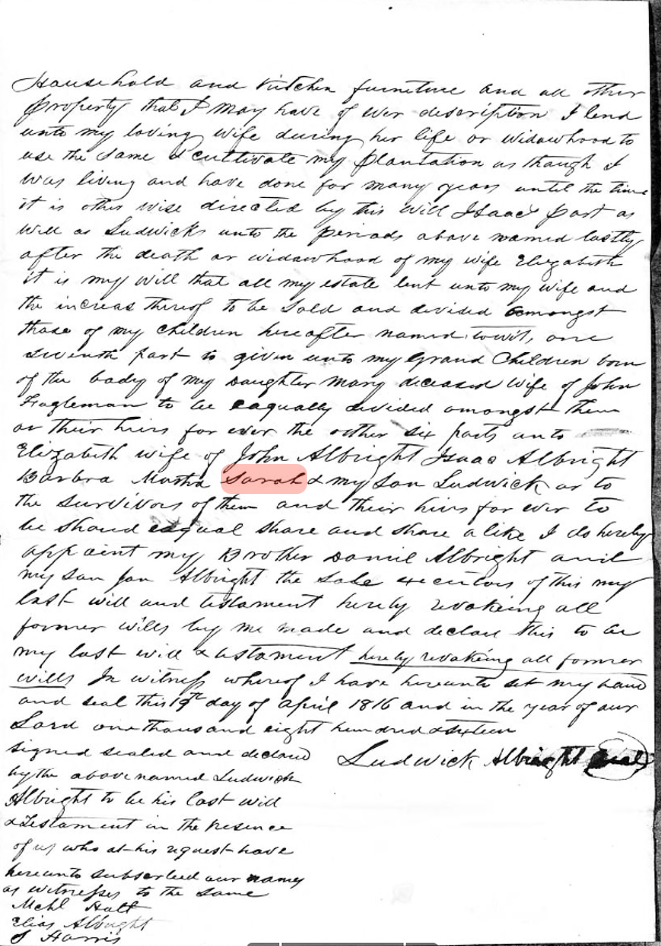 Household and Kitchen furniture and all other
property that I may have of ever description I lend
unto my loving wife during her life or widawhood to
use the same & cultivate my plantation as though I
was living and have done for many years until the time
it is other wise directed by this will Isaac part as
will as Ludwicks unto the periods above named lastly
after the death or widawhood of my wife Elizabeth
it is my will that all my estate lent unto my wife and
the increas thereof to be sold and devided amongst
those of my children hereafter named towit, one
seventh part to given unto my Grand Children born
of the body of my Daughter Mary deceased wife of John
Fogleman to be eaqually devided amongst them
or their heirs for ever the other six parts unto
Elizabeth wife of John Albright Isaac Albright
Barbra Martha Sarah & my son Ludwick or to
the survivors of them and their hirs for ever to
be shaud eaqual share and share alike I do hereby
appaint my Brother Daniel Albright and
my son Albright the sole executors of this my
last will and testament hereby revokeing all
former wills by me made and declare this to be
my last will & testament hereby revokeing all former
wills In witness whereof I have hereunto set my hand
and seal this 9th day of April 1816 and in the year of our
Lord one thousand eight hundred & sixteen
signed sealed and declared Ludwick Albright seal
by the above named Ludwick
Albright to be his last will
& Testament in the presence
of us who at his request have
hereunto subscribed our names
as witnesses to the same
Mchl Holt
Elias Albright
S Harris